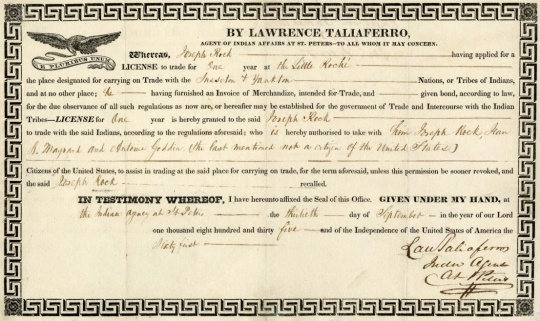 BY LAWRENCE TALIAFERRO,
AGENT OF INDIAN AFFAIRS AT ST. PETERS—TO ALL WHOM IT MAY CONCERN.
E PLURIBUS UNUM
Whereas, Joseph Rock having applied for a
LICENSE to trade for One year at the Little Rocké
the place designated for carrying on Trade with the Sissiton & Yankton Nations, or Tribes of Indians,
and at no other place; he having furnished an Invoice of Merchandize, intended for Trade, and given bond, according to law,
for the due observance of all such regulations as now are, or hereafter may be established for the government of Trade and Intercourse with the Indian
Tribes—LICENSE for One year is hereby granted to the said Joseph Rock
to trade with the said Indians, according to the regulations aforesaid; who is hereby authorised to take with him Joseph Rock, Jean
B. Maynard and Antoine Goddin (the last mentioned not a citizen of the United States)
Citizens of the United States, to assist in trading at the said place for carrying on trade, for the term aforesaid, unless this permission be sooner revoked, and
the said Joseph Rock recalled.
IN TESTIMONY WHEREOF, I have hereunto affixed the Seal of this Office. GIVEN UNDER MY HAND, at
the Indian Agency at St Peters the thirtieth day of September in the year of our Lord
one thousand eight hundred and thirty five and of the Independence of the United States of America the
Sixty first
Law Taliaferro
Indian Agent
at St Peters